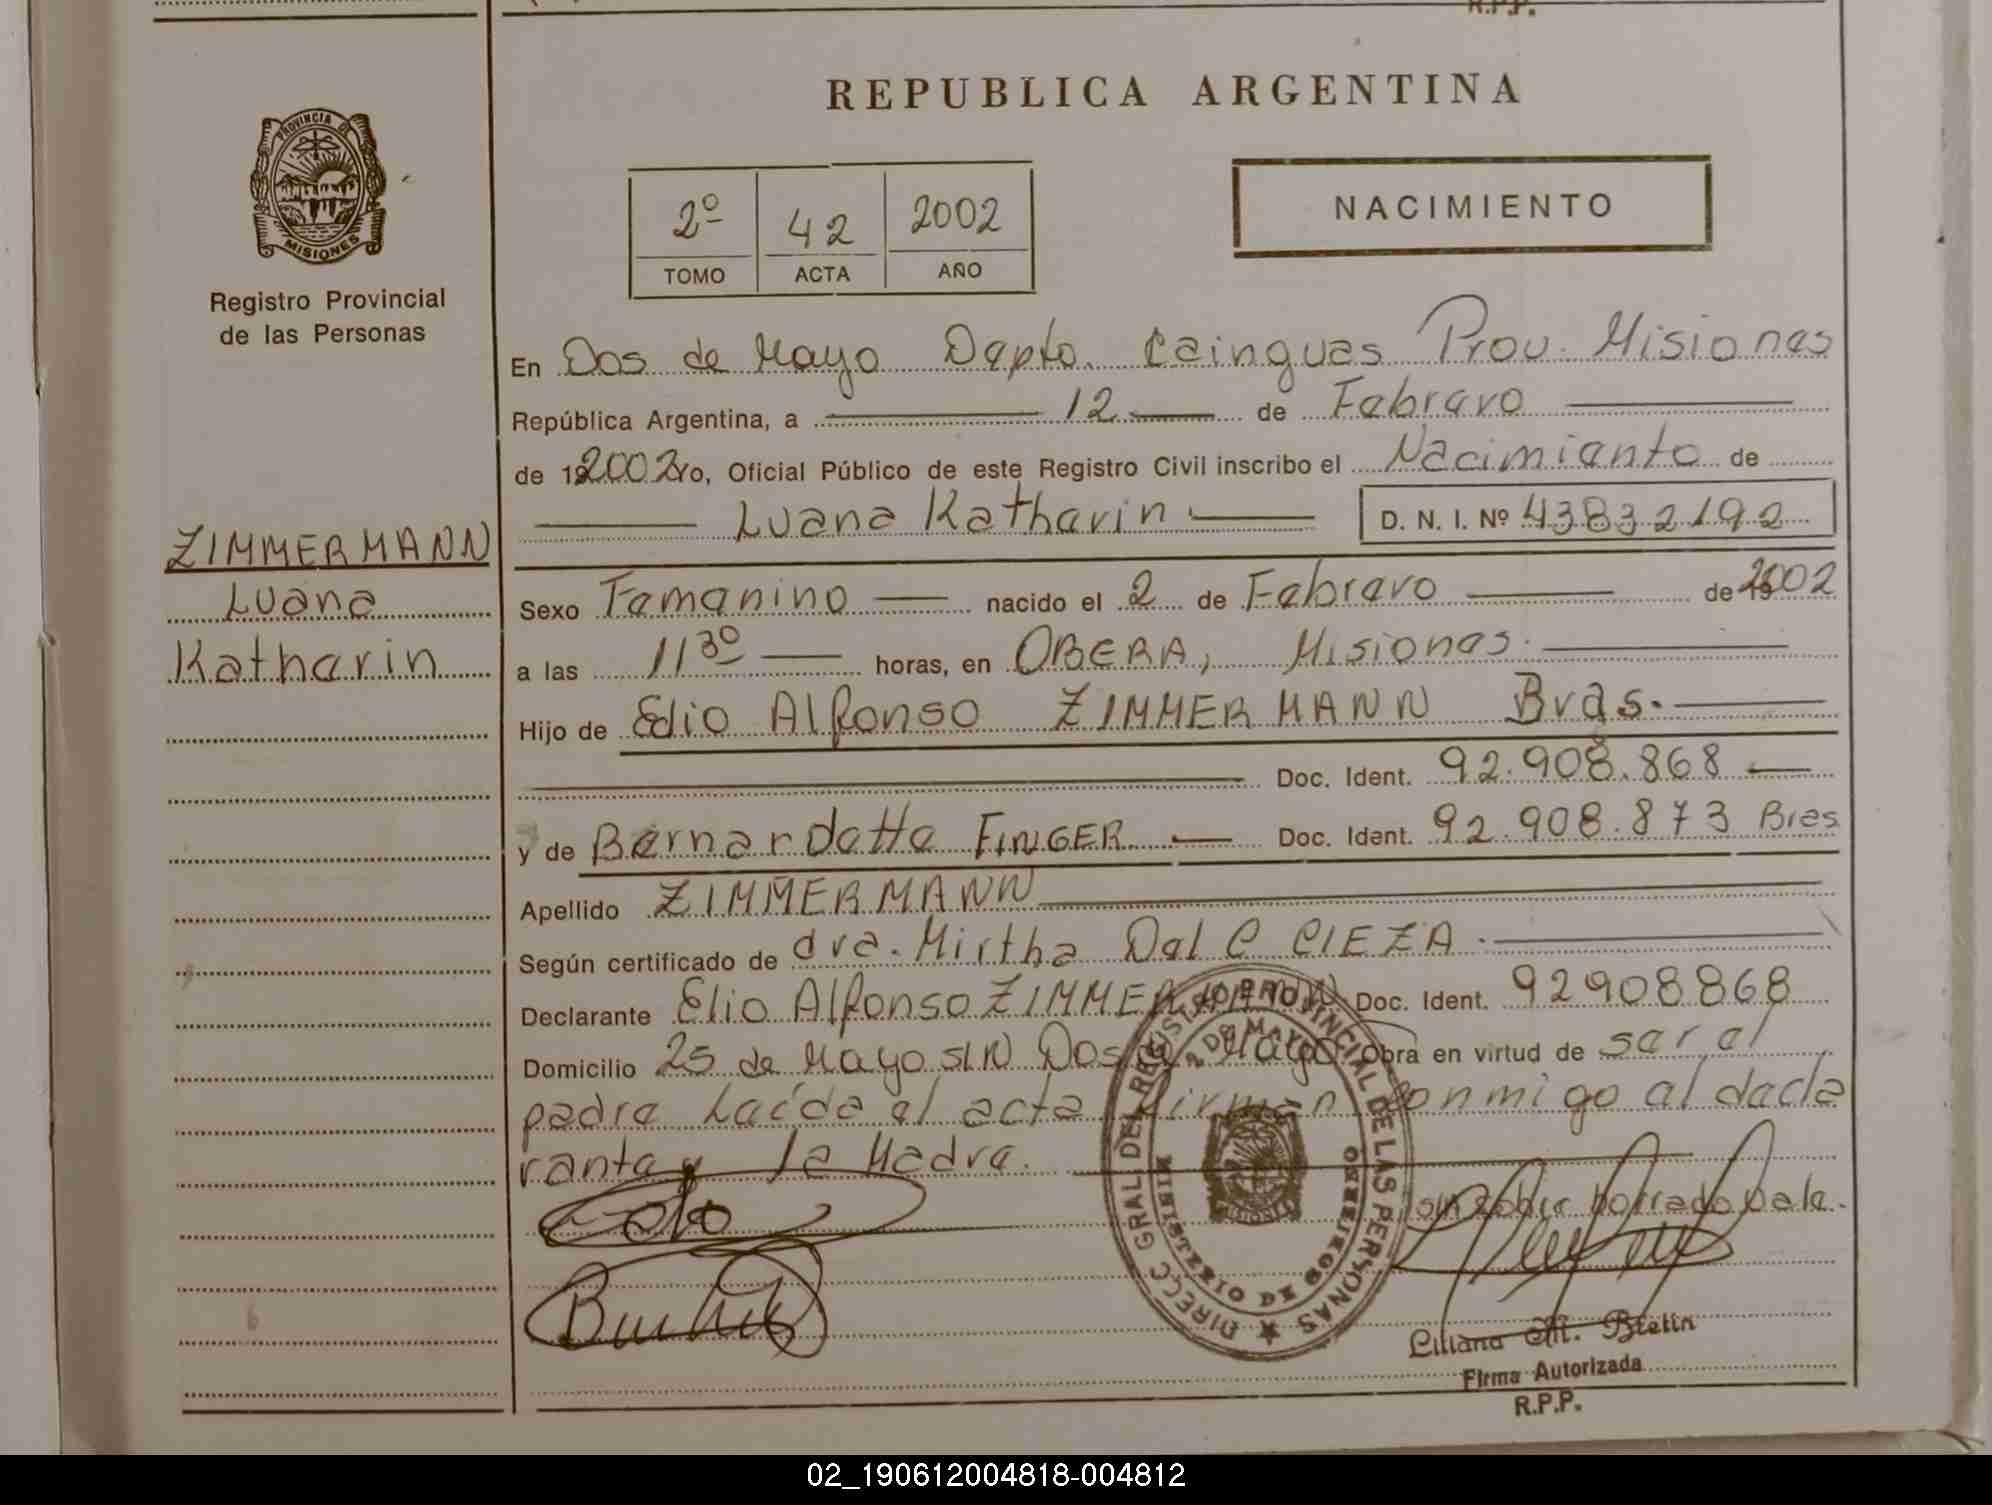 R.P.P.
REPUBLICA ARGENTINA
PROVINCIA DE
MISIONES
Registro Provincial
de las Personas
2º 42 2002
TOMO ACTA AÑO
NACIMIENTO
En Dos de Mayo Depto. Cainguas Prov. Misiones
República Argentina, a 12 de Febrero
de 192002 Yo, Oficial Público de este Registro Civil inscribo el Nacimiento de
Luana Katharin D. N. I. Nº 43832192
ZIMMERMANN
Luana
Katharin
Sexo Femenino nacido el 2 de Febrero de 192002
a las 11³⁰ horas, en OBERA, Misiones.
Hijo de Elio Alfonso ZIMMERMANN Bras.
Doc. Ident. 92.908.868
y de Bernardette FINGER Doc. Ident. 92.908.873 Bras
Apellido ZIMMERMANN
Según certificado de dra. Mirtha Del C CIEZA.
Declarante Elio Alfonso ZIMMERMANN Doc. Ident. 92908868
Domicilio 25 de Mayo S/N Dos de Mayo Obra en virtud de ser el
padre Leída el acta firman conmigo el decla
rante y la Madre.
sobre borrado Vale.
DIRECC. GRAL. DEL REGISTRO PROVINCIAL DE LAS PERSONAS
2 DE MAYO
MINISTERIO DE GOBIERNO
Liliana M.
Firma Autorizada
R.P.P.
02_190612004818-004812